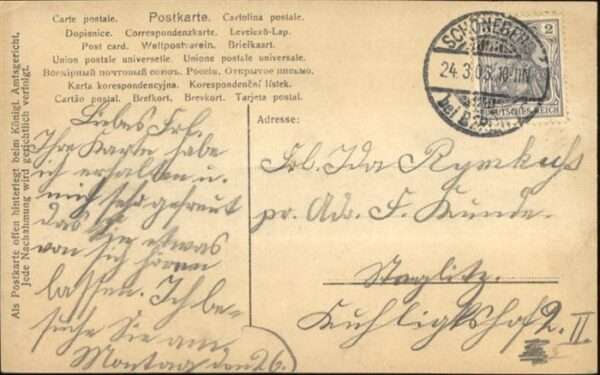 Carte postale. Postkarte. Cartolina postale.
Dopisnice. Correspondenzkarte. Levelező-Lap.
Post card. Weltpostverein. Briefkaart.
Union postale universelle. Unione postale universale.
Всемірный почтовый союзъ. Россія. Открытое письмо.
Karta korespondencyjna. Korespondenční lístek.
Cartão postal. Brefkort. Brevkort. Tarjeta postal.
Als Postkarte offen hinterlegt beim Königl. Amtsgericht.
Jede Nachahmung wird gerichtlich verfolgt.
SCHÖNEBERG
24.3.06. 10-11N.
bei BERLIN
2
DEUTSCHES REICH
Liebes Frl.
Ihre Karte habe
ich erhalten u.
mich sehr gefreut
das Sie etwas
von sich hören
lassen. Ich be-
suche Sie am
Montag den 26.
Adresse:
Frl. Ida Rymkuhs
pr. Adr. F. Kunde.
Steglitz.
2. II.